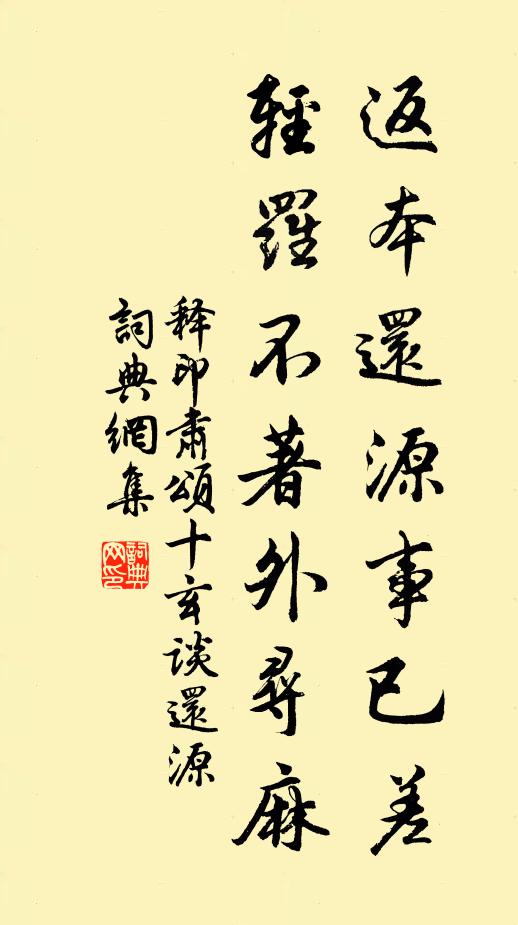 返本還源事已差
輕羅不著外尋麻
释印肅頌十玄談還源
詞典網集
詞典網印